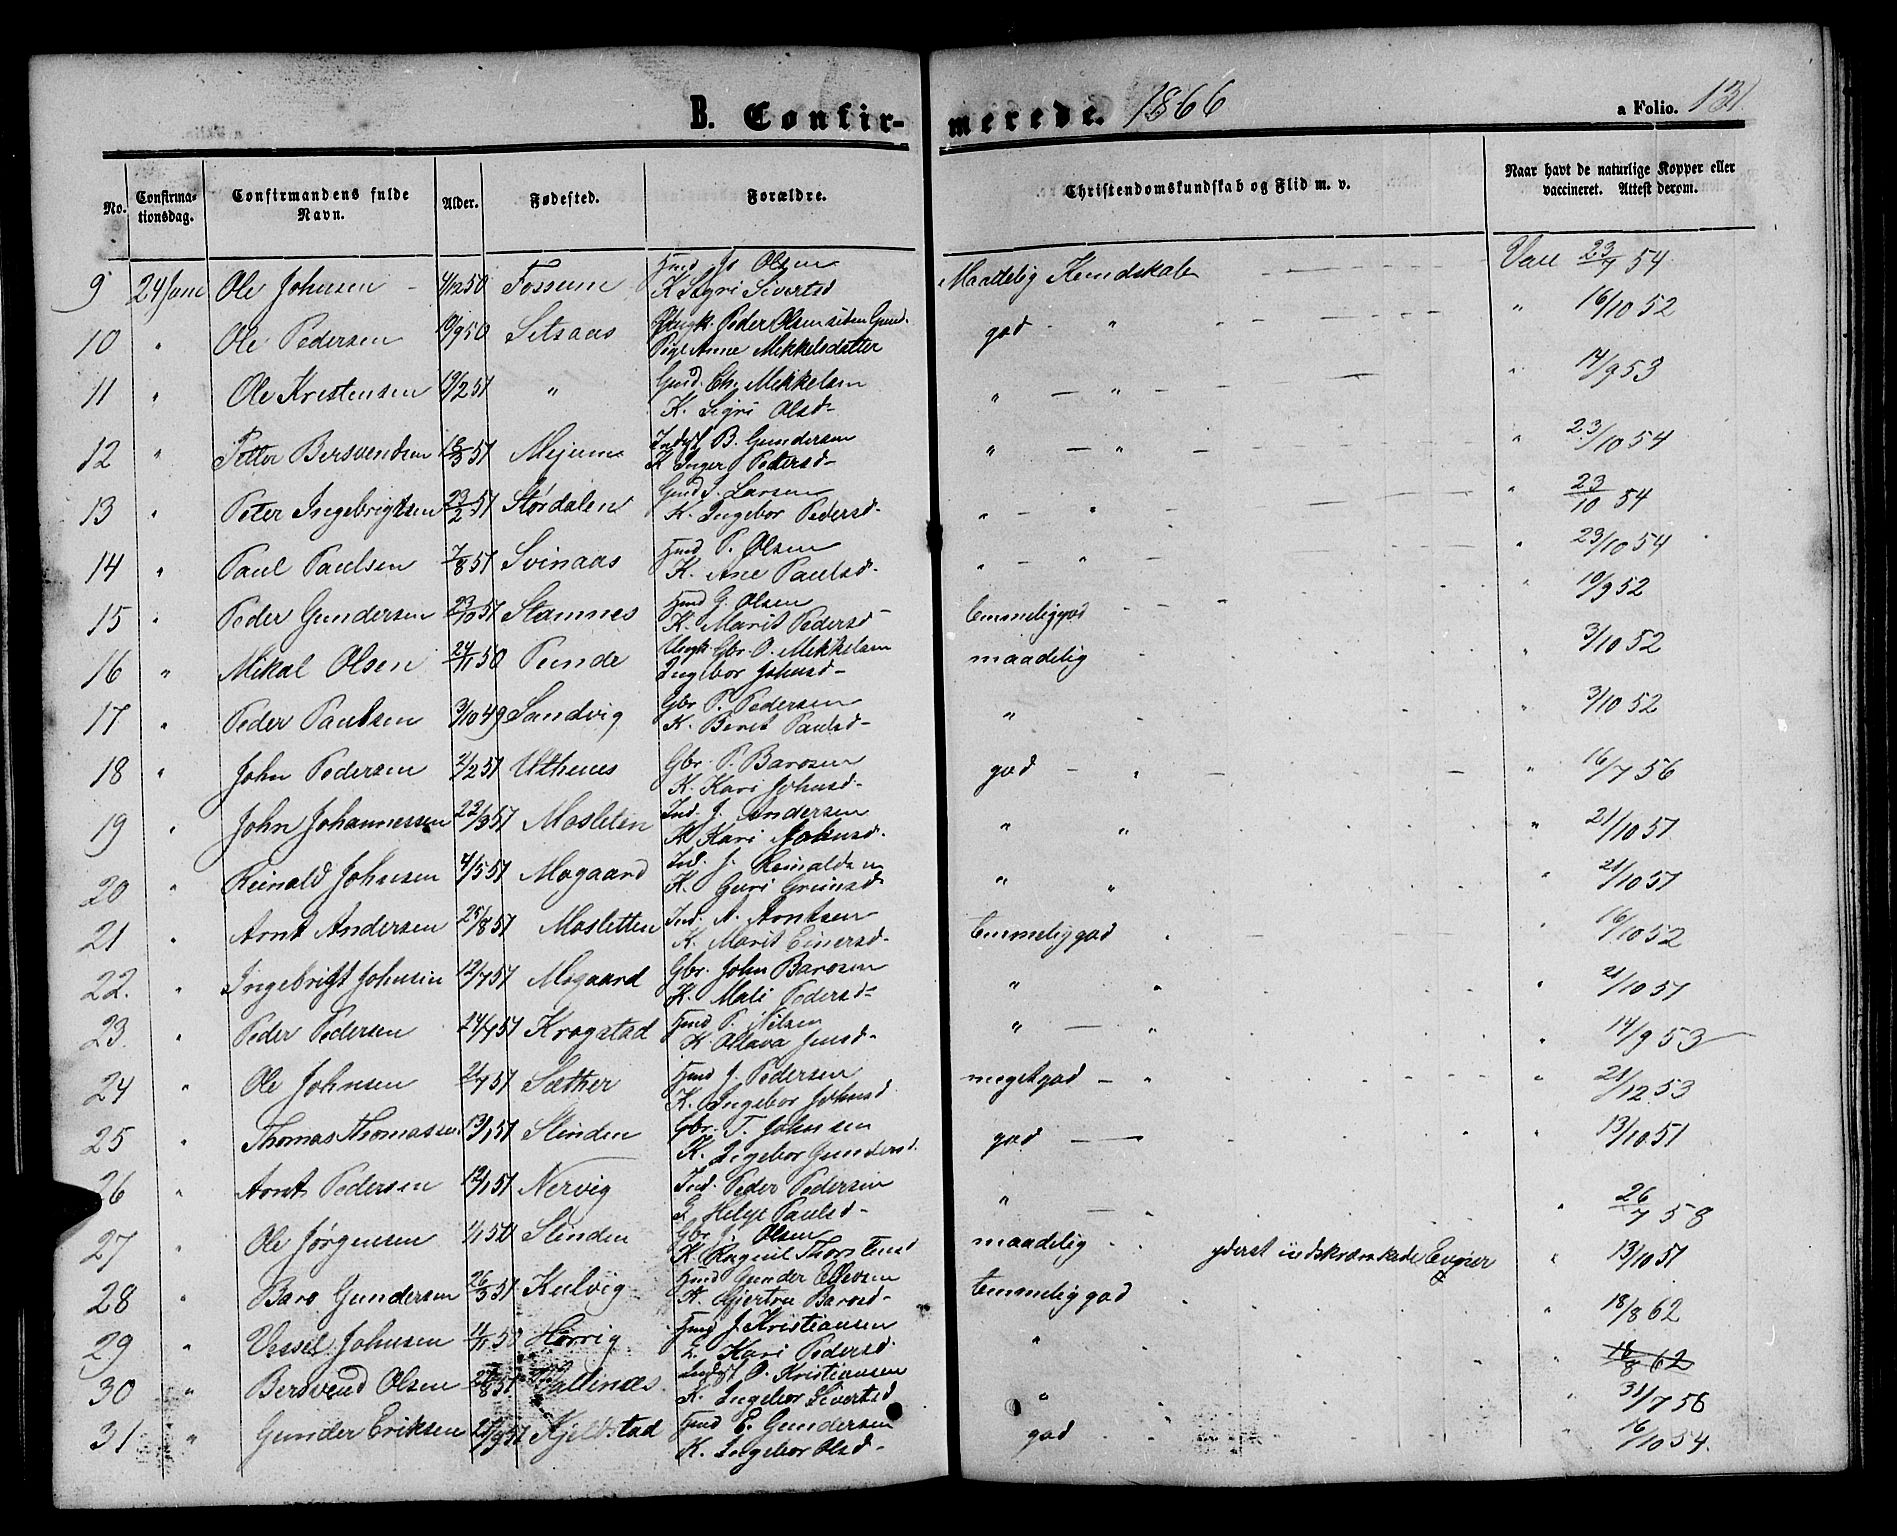 B. Confir- merede. 1866 a Folio. 131
No. Confirma-tionsdag. Confirmandens fulde Navn. Alder. Fødested. Forældre. Christendomskundskab og Flid m. v. Naar havt de naturlige Kopper eller vaccineret. Attest derom.
9 24 Juni Ole Johnsen 4/12 50 Fossum Hmd Jo Olsen Maadelig Kundskaber Vacc 23/7 54
K Sigri Sivertsd
10 " Ole Pedersen 10/9 50 Setsaas Ungk. Peder Olsen siden Gmd. god " " 16/10 52
Pige Anne Mikkelsdatter
11 " Ole Kristensen 19/2 51 " Gmd. Ch. Mikkelsen " " " 14/9 53
K. Sigri Olsd-
12 " Petter Bersvendsen 18/3 51 Mejume Inds B. Gundersen " " " 23/10 54
K Inger Pedersd-
13 " Peter Ingebrigtsen 23/2 51 Størdalen Gmd I. Larsen " " " 23/10 54
K. Ingebor Pedersd-
14 " Paul Paulsen 7/8 51 Svinaas Hmd P. Olsen " " " 23/10 54
K. Ane Paulsd-
15 " Peder Gundersen 23/10 51 Stamnes Hmd G. Olsen temmelig god " 10/9 52
K. Marit Pedersd
16 " Mikal Olsen 24/11 50 Tunde Ungk. Gbr O. Mikkelsen maadelig " 3/10 52
Ingebor Johnsd-
17 " Peder Paulsen 3/10 49 Sandvig Gbr P. Pedersen " " 3/10 52
K. Beret Paulsd-
18 " John Pedersen 2/2 51 Uthenes Gbr. P. Barosen god " " 16/7 56
K. Kari Johnsd-
19 " John Johannessen 22/3 51 Mosletten Ind. J. Andersen " " " 21/10 51
K Kari Johnsd.
20 " Reinald Johnsen 4/5 51 Mogaard Ind. J. Reinaldsen " " " 21/10 51
K. Guri Grimsd
21 " Arnt Andersen 25/8 51 Mosletten Ind. A. Arntsen temmelig god " 16/10 52
K. Marit Einersd-
22. " Ingebrigt Johnsen 12/7 51 Mogaard Gbr. John Barosen " " " 21/10 51
K. Mali Pedersd-
23 " Peder Pedersen 24/7 51 Krogstad Hmd P. Nilsen " " " 14/9 53
K Ollava Jensd-
24 " Ole Johnsen 21/7 51 Sæther Hmd J. Pedersen meget god " " 28/12 53
K. Ingebor Johnsd
25 " Thomas Thomassen 13/1 51 Slinden Gbr. T. Johnsen god 13/10 51
K. Ingebor Gundersd.
26 " Arnt Pedersen 12/1 51 Nervig Ind. Peder Pedersen " 26/7 58
Helge Paulsd-
27 " Ole Jørgensen 1/1 50 Slinden Gbr. J. Olsen maadelig yderst indskrænkede Evner " 13/10 51
K. Ragnil Thorstensd
28 " Baro Gundersen 26/3 51 Kulvig Hmd Gunder Ellevsen temmelig god " 18/8 62
K. Gjertru Barosd-
29 " Vessel Johnsen 4/11 50 Hervig Hmd J. Kristiansen " " 18/8 62
Kari Pedersd
30 " Bersvend Olsen 27/8 51 Vallinæs. Inds O. Kristiansen " " 31/7 56
K. Ingebor Sivertsd
31 " Gunder Eriksen 21/9 51 Kjeldstad Hmd E. Gundersen god 16/10 54.
K. Ingebor Olsd-